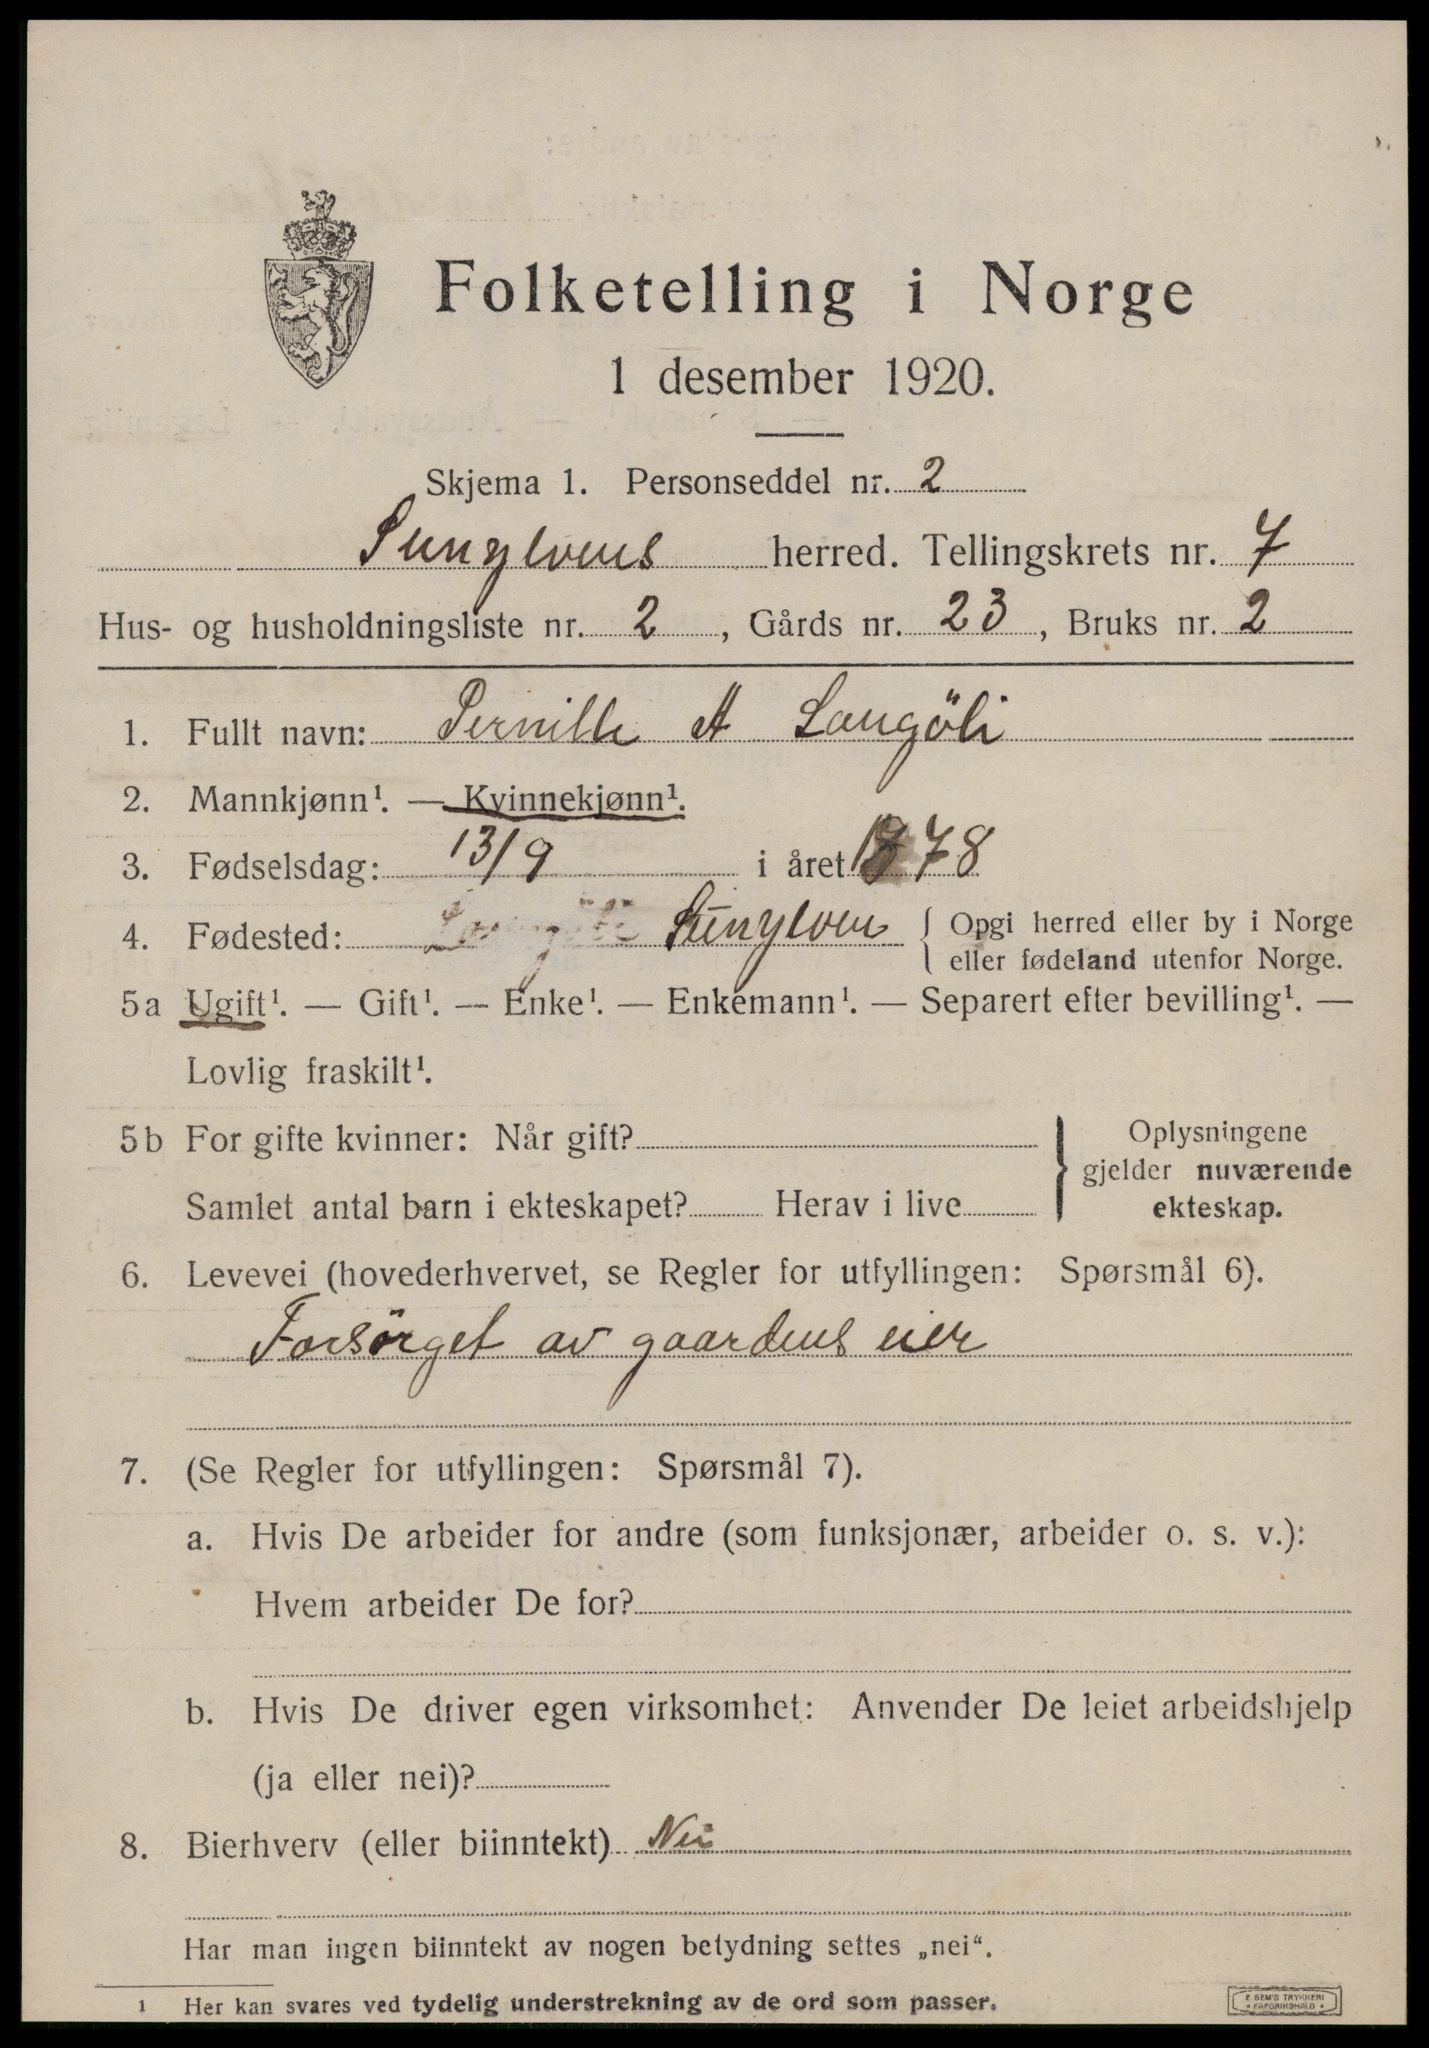 Folketelling i Norge
1 desember 1920.
Skjema 1. Personseddel nr. 2
Sunylvens herred. Tellingskrets nr. 7
Hus- og husholdningsliste nr. 2, Gårds nr. 23, Bruks nr. 2
1. Fullt navn: Pernille A Langöli
2. Mannkjønn¹. — Kvinnekjønn¹.
3. Fødselsdag: 13/9 i året 1878
4. Fødested: Langöli Sunylven { Opgi herred eller by i Norge
eller fødeland utenfor Norge.
5a Ugift¹. — Gift¹. — Enke¹. — Enkemann¹. — Separert efter bevilling¹. —
Lovlig fraskilt¹.
5b For gifte kvinner: Når gift?
Samlet antal barn i ekteskapet? Herav i live
} Oplysningene
gjelder nuværende
ekteskap.
6. Levevei (hovederhvervet, se Regler for utfyllingen: Spørsmål 6).
Forsörget av gaardens eier
7. (Se Regler for utfyllingen: Spørsmål 7).
a. Hvis De arbeider for andre (som funksjonær, arbeider o. s. v.):
Hvem arbeider De for?
b. Hvis De driver egen virksomhet: Anvender De leiet arbeidshjelp
(ja eller nei)?
8. Bierhverv (eller biinntekt) Nei
Har man ingen biinntekt av nogen betydning settes „nei“.
1 Her kan svares ved tydelig understrekning av de ord som passer.
E. SEM'S TRYKKERI
• FAFORIKSHALD •